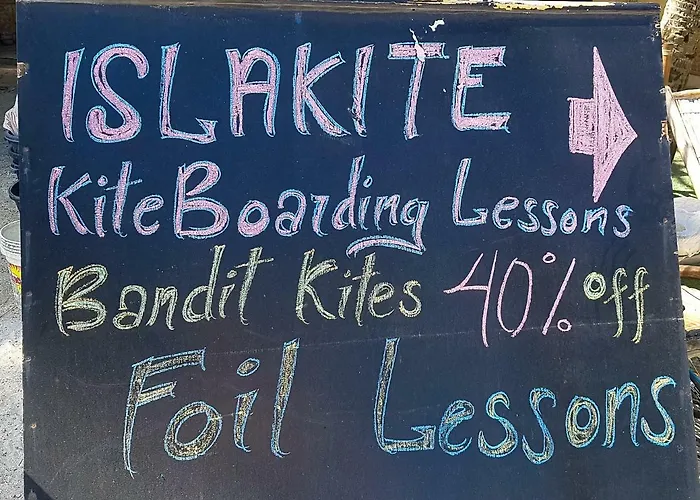 ISLAKITE
KiteBoarding Lessons
Bandit Kites 40% off
Foil Lessons